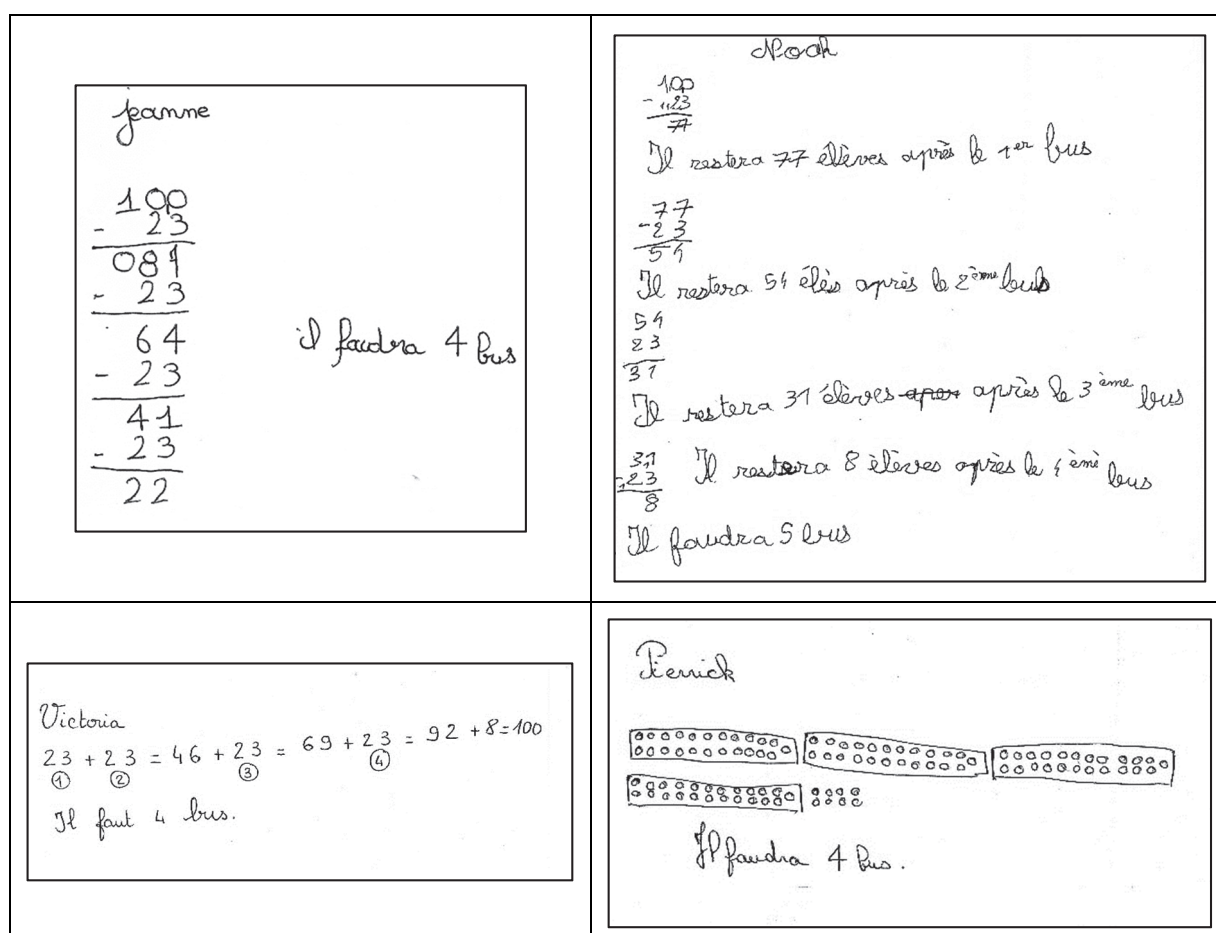 jeanne
100
- 23
081
- 23
64
- 23
41
- 23
22
il faudra 4 bus
Noah
100
- 23
77
Il restera 77 élèves après le 1er bus
77
- 23
54
Il restera 54 élès après le 2ème bus
54
23
31
Il restera 31 élèves après le 3ème bus
31
- 23
8
Il restera 8 élèves après le 4ème bus
Il faudra 5 bus
Victoria
23 + 23 = 46 + 23 = 69 + 23 = 92 + 8 = 100
① ② ③ ④
Il faut 4 bus.
Pierrick
Il faudra 4 bus.